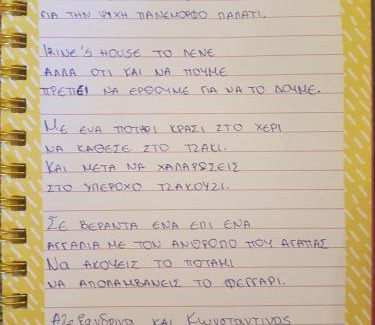 ΓΙΑ ΤΗΝ ΨΥΧΗ ΠΑΝΕΜΟΡΦΟ ΠΑΛΑΤΙ.
IRINE'S HOUSE ΤΟ ΛΕΝΕ
ΑΛΛΑ ΟΤΙ ΚΑΙ ΝΑ ΠΟΥΜΕ
ΠΡΕΠΕΙ ΝΑ ΕΡΘΟΥΜΕ ΓΙΑ ΝΑ ΤΟ ΔΟΥΜΕ.
ΜΕ ΕΝΑ ΠΟΤΗΡΙ ΚΡΑΣΙ ΣΤΟ ΧΕΡΙ
ΝΑ ΚΑΘΕΣΕ ΣΤΟ ΤΖΑΚΙ.
ΚΑΙ ΜΕΤΑ ΝΑ ΧΑΛΑΡΩΣΕΙΣ
ΣΤΟ ΥΠΕΡΟΧΟ ΤΖΑΚΟΥΖΙ.
ΣΕ ΒΕΡΑΝΤΑ ΕΝΑ ΕΠΙ ΕΝΑ
ΑΓΓΑΛΙΑ ΜΕ ΤΟΝ ΑΝΘΡΟΠΟ ΠΟΥ ΑΓΑΠΑΣ
ΝΑ ΑΚΟΥΕΙΣ ΤΟ ΠΟΤΑΜΙ
ΝΑ ΑΠΟΛΑΜΒΑΝΕΙΣ ΤΟ ΦΕΓΓΑΡΙ.
ΑΛΕΞΑΝΔΡΙΝΑ ΚΑΙ ΚΩΝΣΤΑΝΤΙΝΟΣ